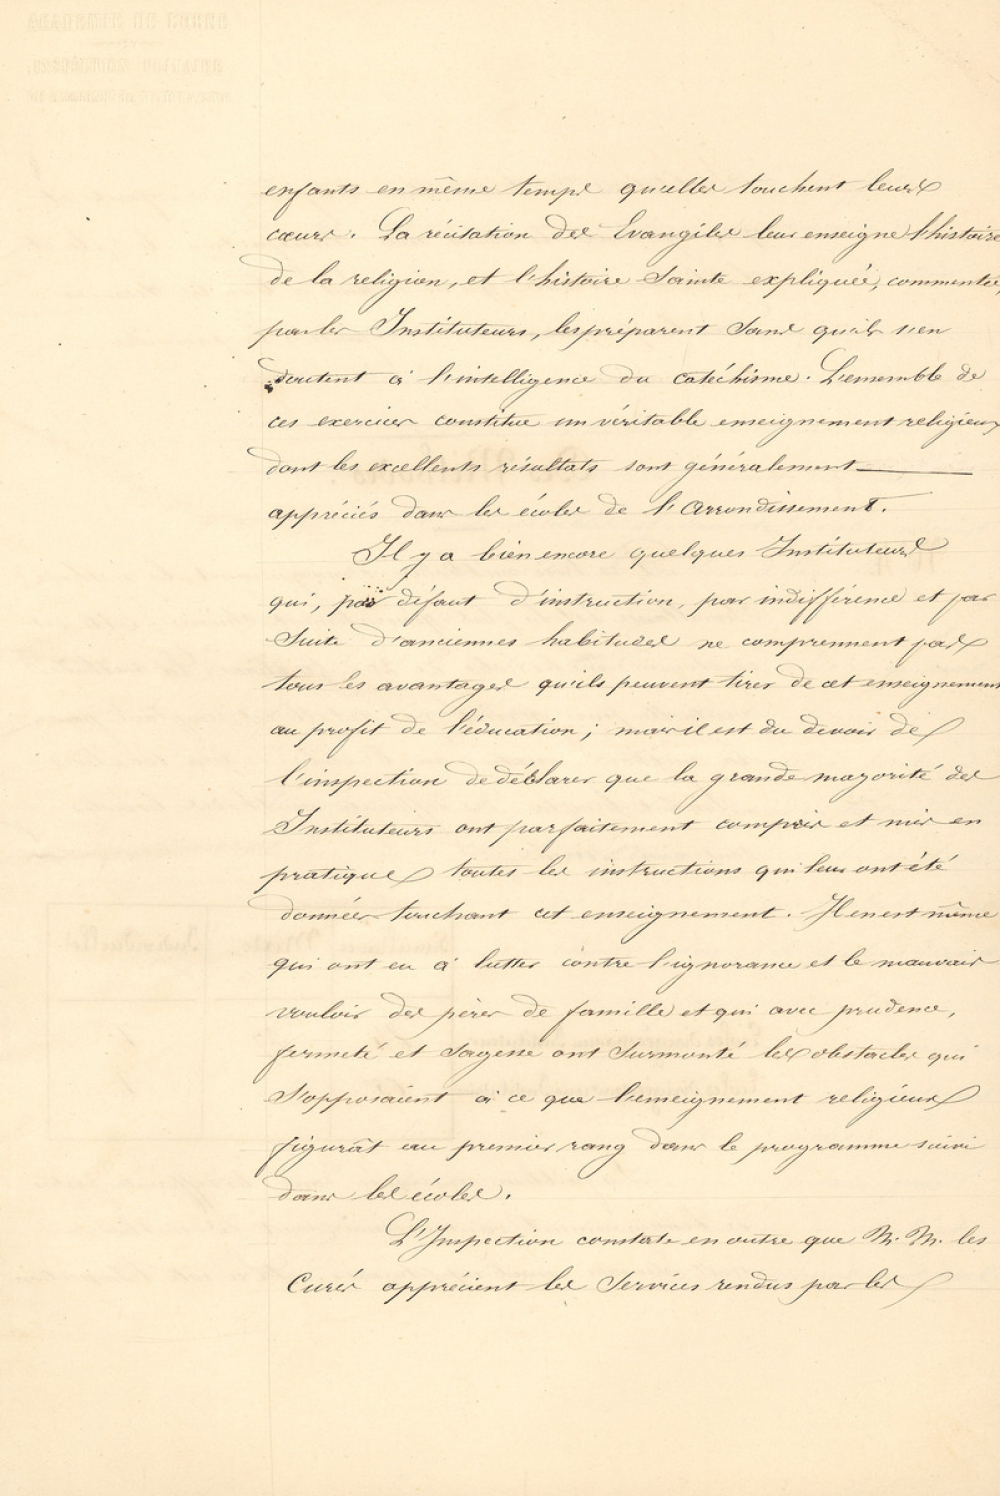 enfants en même temps qu'elles touchent leurs
cœurs. La récitation des Evangiles leur enseigne l'histoire
de la religion, et l'histoire Sainte expliquée, commentée,
par les Instituteurs, les préparent sans qu'ils s'en
doutent à l'intelligence du catéchisme. L'ensemble de
ces exercices constitue un véritable enseignement religieux
dont les excellents résultats sont généralement
appréciés dans les écoles de l'Arrondissement.
Il y a bien encore quelques Instituteurs
qui, par défaut d'instruction, par indifférence et par
Suite d'anciennes habitudes ne comprennent pas
tous les avantages qu'ils peuvent tirer de cet enseignement
au profit de l'éducation; mais il est du devoir de
l'inspection de déclarer que la grande majorité des
Instituteurs ont parfaitement compris et mis en
pratique toutes les instructions qui leur ont été
données touchant cet enseignement. Il en est même
qui ont eu à lutter contre l'ignorance et le mauvais
vouloir des pères de famille et qui avec prudence,
fermeté et Sagesse ont Surmonté les obstacles qui
S'opposaient à ce que l'enseignement religieux
figurât au premier rang dans le programme suivi
dans les écoles.
L'Inspection constate en outre que M. M. les
Curés apprécient les Services rendus par les